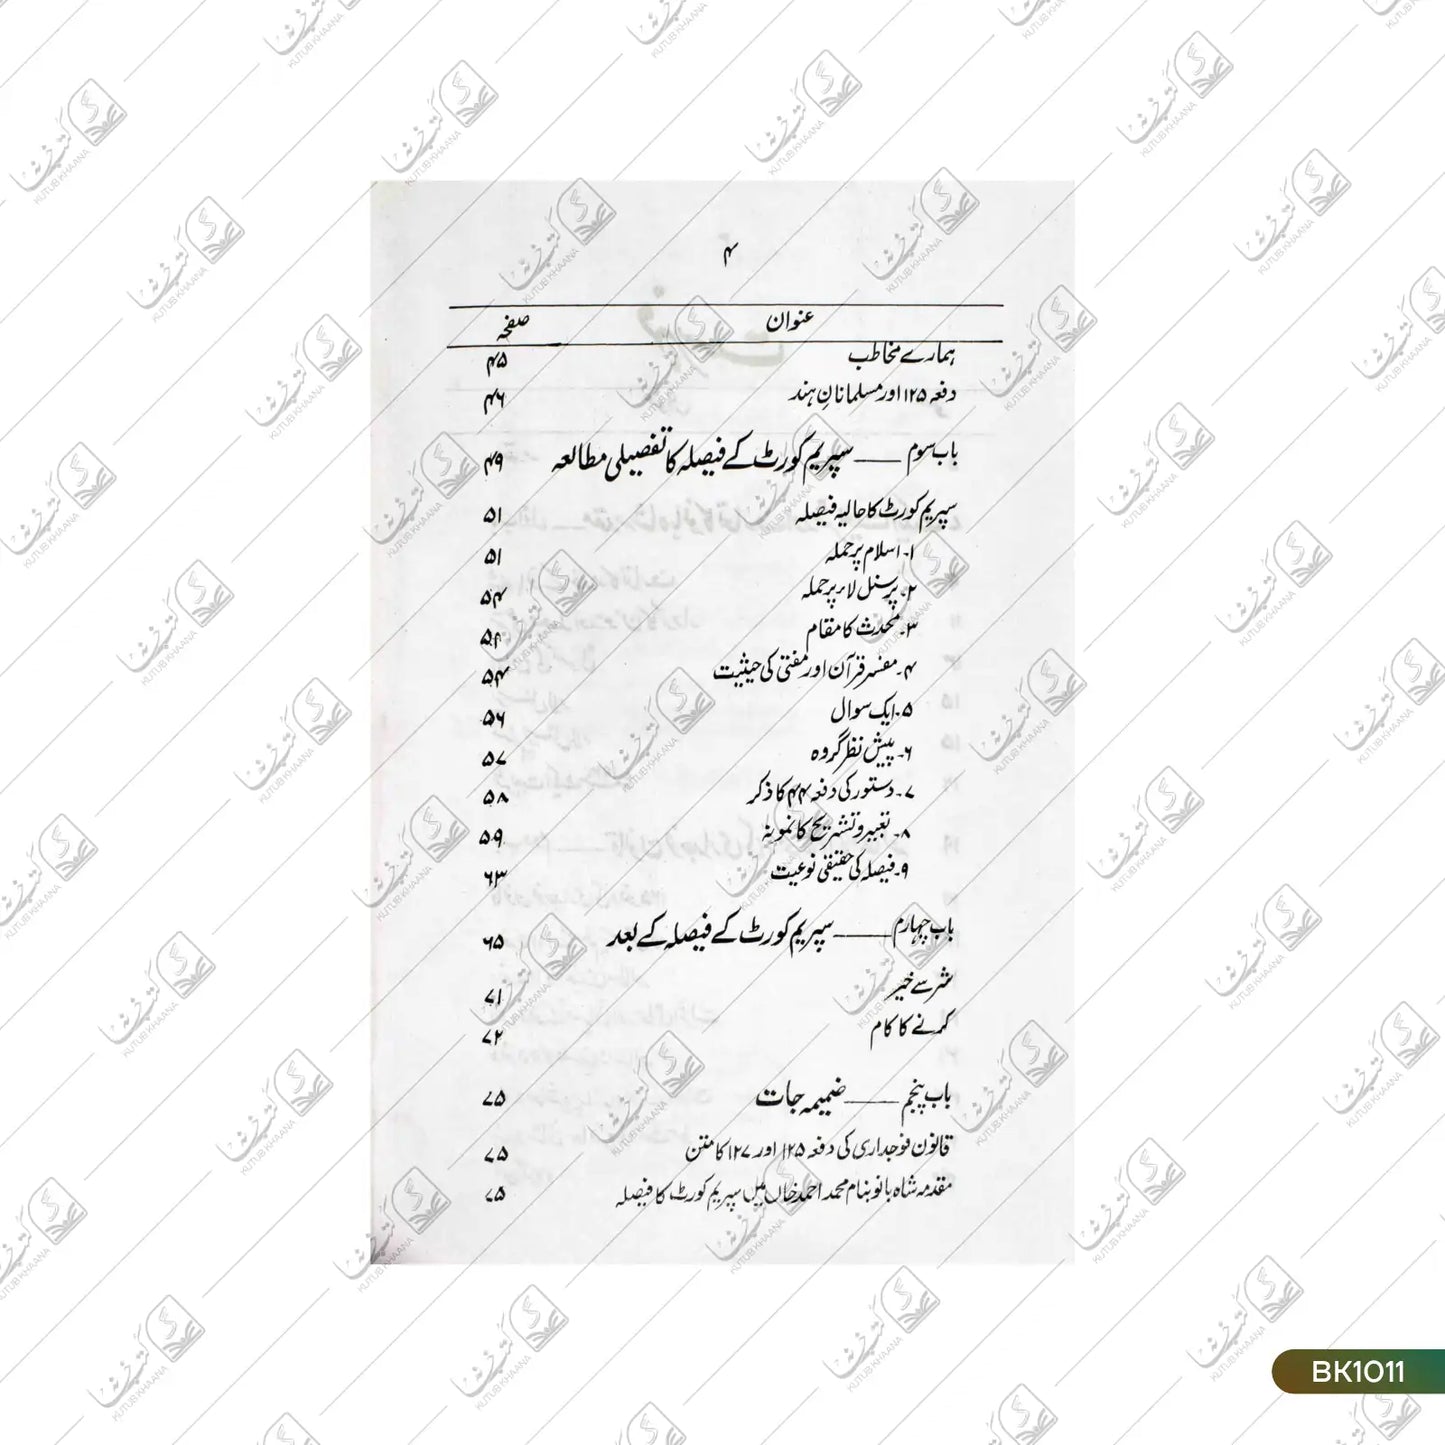 ۴
عنوان صفحہ
ہمارے مخاطب ۴۵
دفعہ ۱۲۵ اور مسلمانانِ ہند ۴۶
باب سوم —— سپریم کورٹ کے فیصلہ کا تفصیلی مطالعہ ۴۹
سپریم کورٹ کا حالیہ فیصلہ ۵۱
۱۔ اسلام پر حملہ ۵۱
۲۔ پرسنل لاء پر حملہ ۵۴
۳۔ محدث کا مقام ۵۴
۴۔ مفسر قرآن اور مفتی کی حیثیت ۵۴
۵۔ ایک سوال ۵۶
۶۔ پیش نظر گروہ ۵۷
۷۔ دستور کی دفعہ ۴۴ کا ذکر ۵۸
۸۔ تعبیر و تشریح کا نمونہ ۵۹
۹۔ فیصلہ کی حقیقی نوعیت ۶۳
باب چہارم —— سپریم کورٹ کے فیصلہ کے بعد ۶۵
شر سے خیر ۷۱
کرنے کا کام ۷۲
باب پنجم —— ضمیمہ جات ۷۵
قانون فوجداری کی دفعہ ۱۲۵ اور ۱۲۷ کا متن ۷۵
مقدمہ شاہ بانو بنام محمد احمد خاں میں سپریم کورٹ کا فیصلہ ۷۵
BK1011
کتب خانہ
KUTUB KHAANA